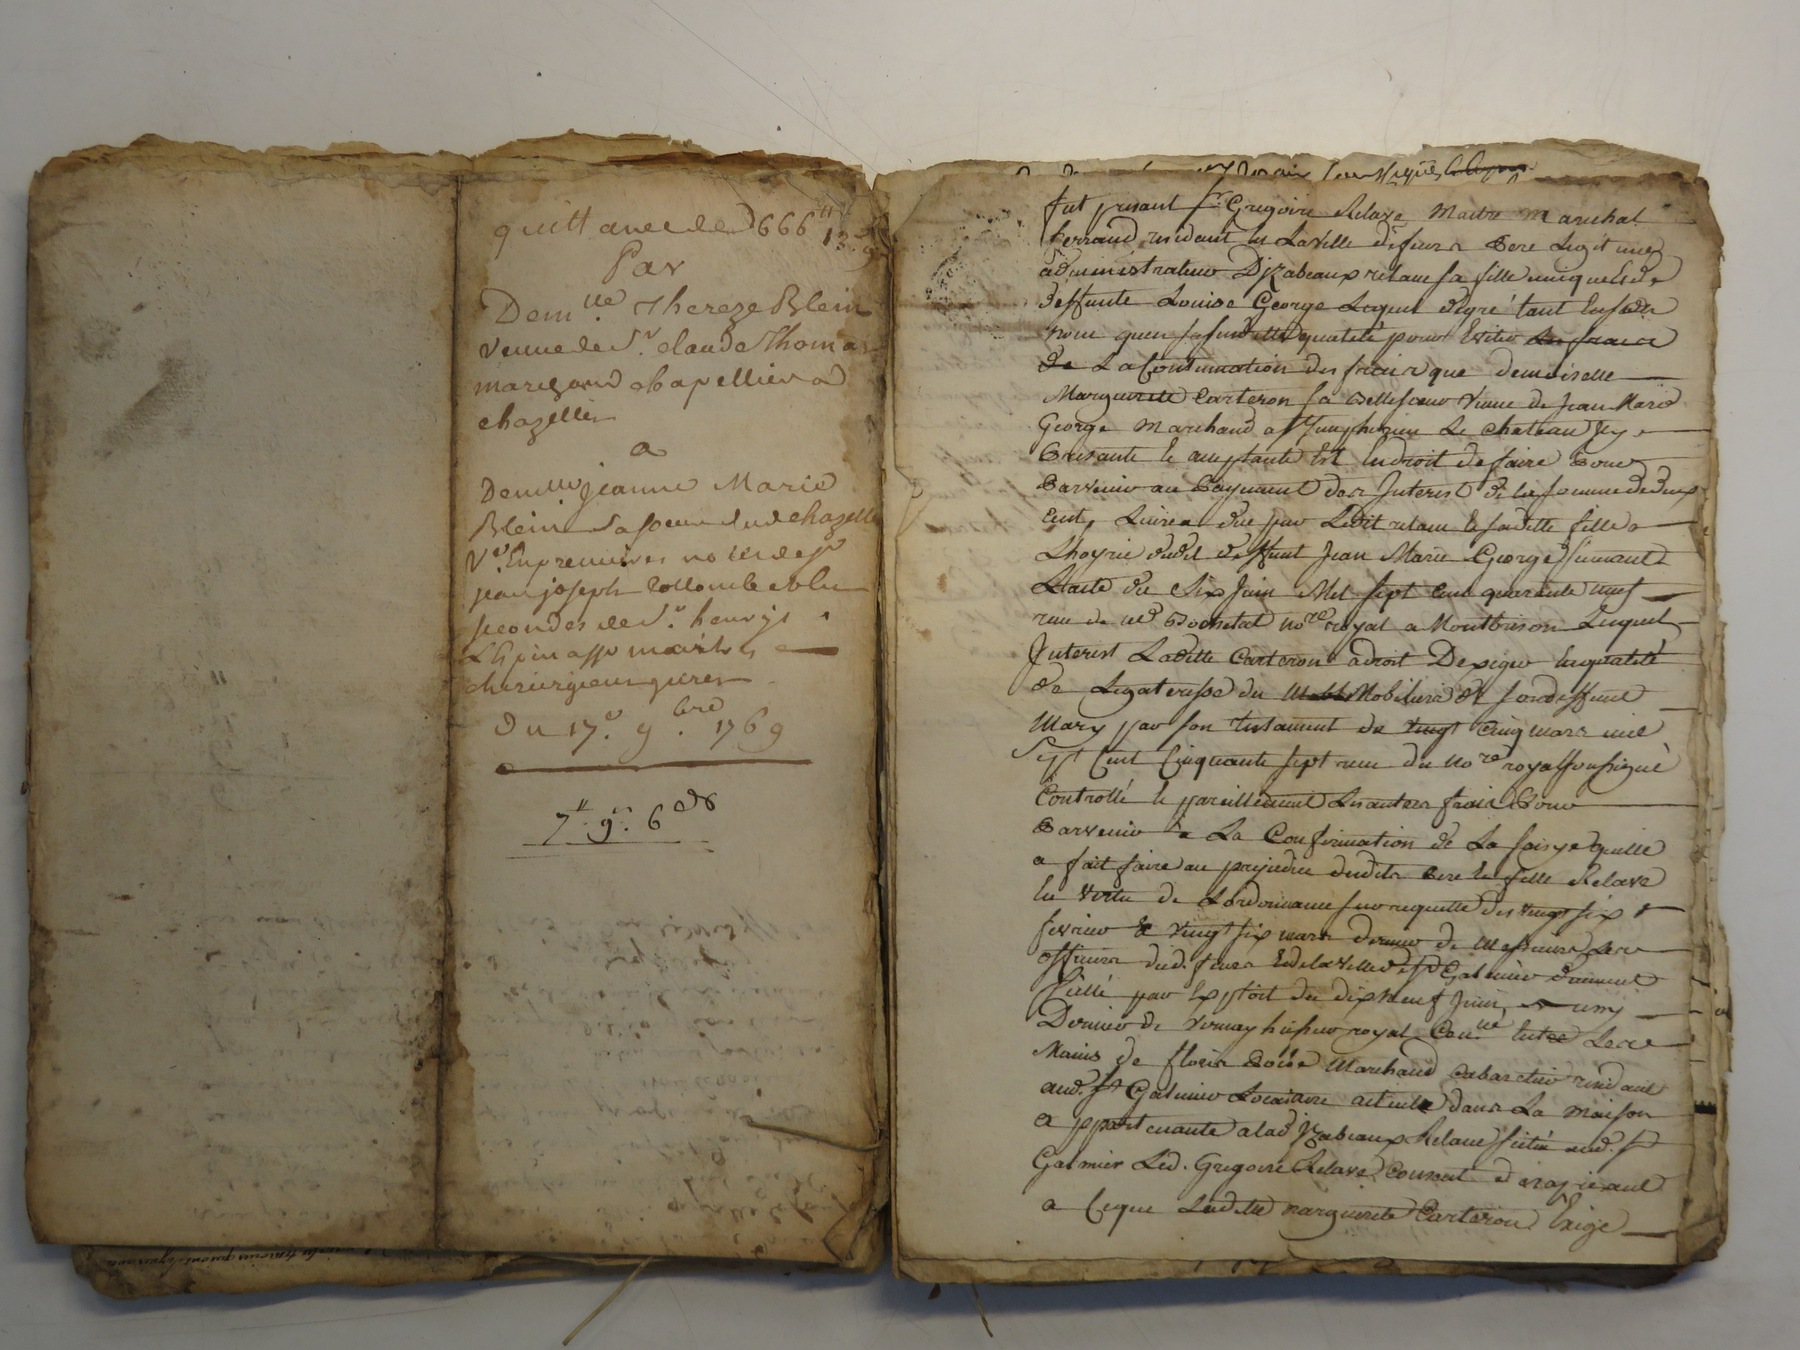 quittance de 666ᴸᴸ 13ˢ 9
Par
Demˡˡᵉ Thereze Blein
veuve de Sʳ. claude Thomas
marchand chapellier a
chazelles
a
Demˡˡᵉ jeanne Marie
Blein sa soeur dud. chazelle
Vᵉ. En premieres noces de sʳ
jean joseph collombet & En
secondes de Sʳ. henrys
Lespinasse maitre
chirurgien juré
Du 17ᵉ. 9ᵇʳᵉ. 1769
7ᴸᴸ. 9ˢ. 6ᵈˢ
fut present sʳ. Gregoire Relave Maitre marechal
ferrand residant en La Ville de feurs Pere Legitime
administrateur D'Izabeaux relave sa fille unique & de
deffunte Louise George Lequel de gré tant en sondit
nom qu'en susd. ditte qualité pour Eviter les fraix
de La Continuation des fraix que demoiselle
Marguerite Carteron sa Bellesoeur Veuve de Jean Marie
George Marchand a St Simphorien Le Chateau Icy
Presante & acceptante Est En droit de faire Pour
Parvenir au Payement des Interest de la somme de deux
Cent Livres due par Ledit relave & saditte fille a
L'hoyrie dudit deffunt Jean Marie George suivant
L'acte du Six Juin Mil Sept Cent quarante neuf
recu de Mᵉ Bochetal noʳᵉ royal a Montbrison Lesquels
Interest Laditte Carteron a droit D'exiger En qualité
de Legateresse du Mobiliere de son deffunt
Mary par son testament du vingt Cinq mars mil
Sept Cent Cinquante sept recu du noʳᵉ royal soussigné
Controllé & pareillement Les autres fraix Pour
Parvenir a La Confirmation de La saisye qu'elle
a fait faire au prejudice desdits Pere & fille Relave
En Vertu de L'ordonnance sur requette des vingt six
fevrier & Vingt six mars dernier de Messieurs Les
officiers dud. feurs & de la Ville de St Galmier dument
scellé par Exploit du dix neuf Juin
Dernier de Vernay huissier royal Entre Les
Mains de floris Marchand Cabaretier residant
aud. St Galmier Locataire actuele dans La Maison
appartenante a lad Izabeaux Relave scituée aud. St
Galmier Led. Gregoire Relave Consent
a Ceque Laditte Marguerite Carteron Exige